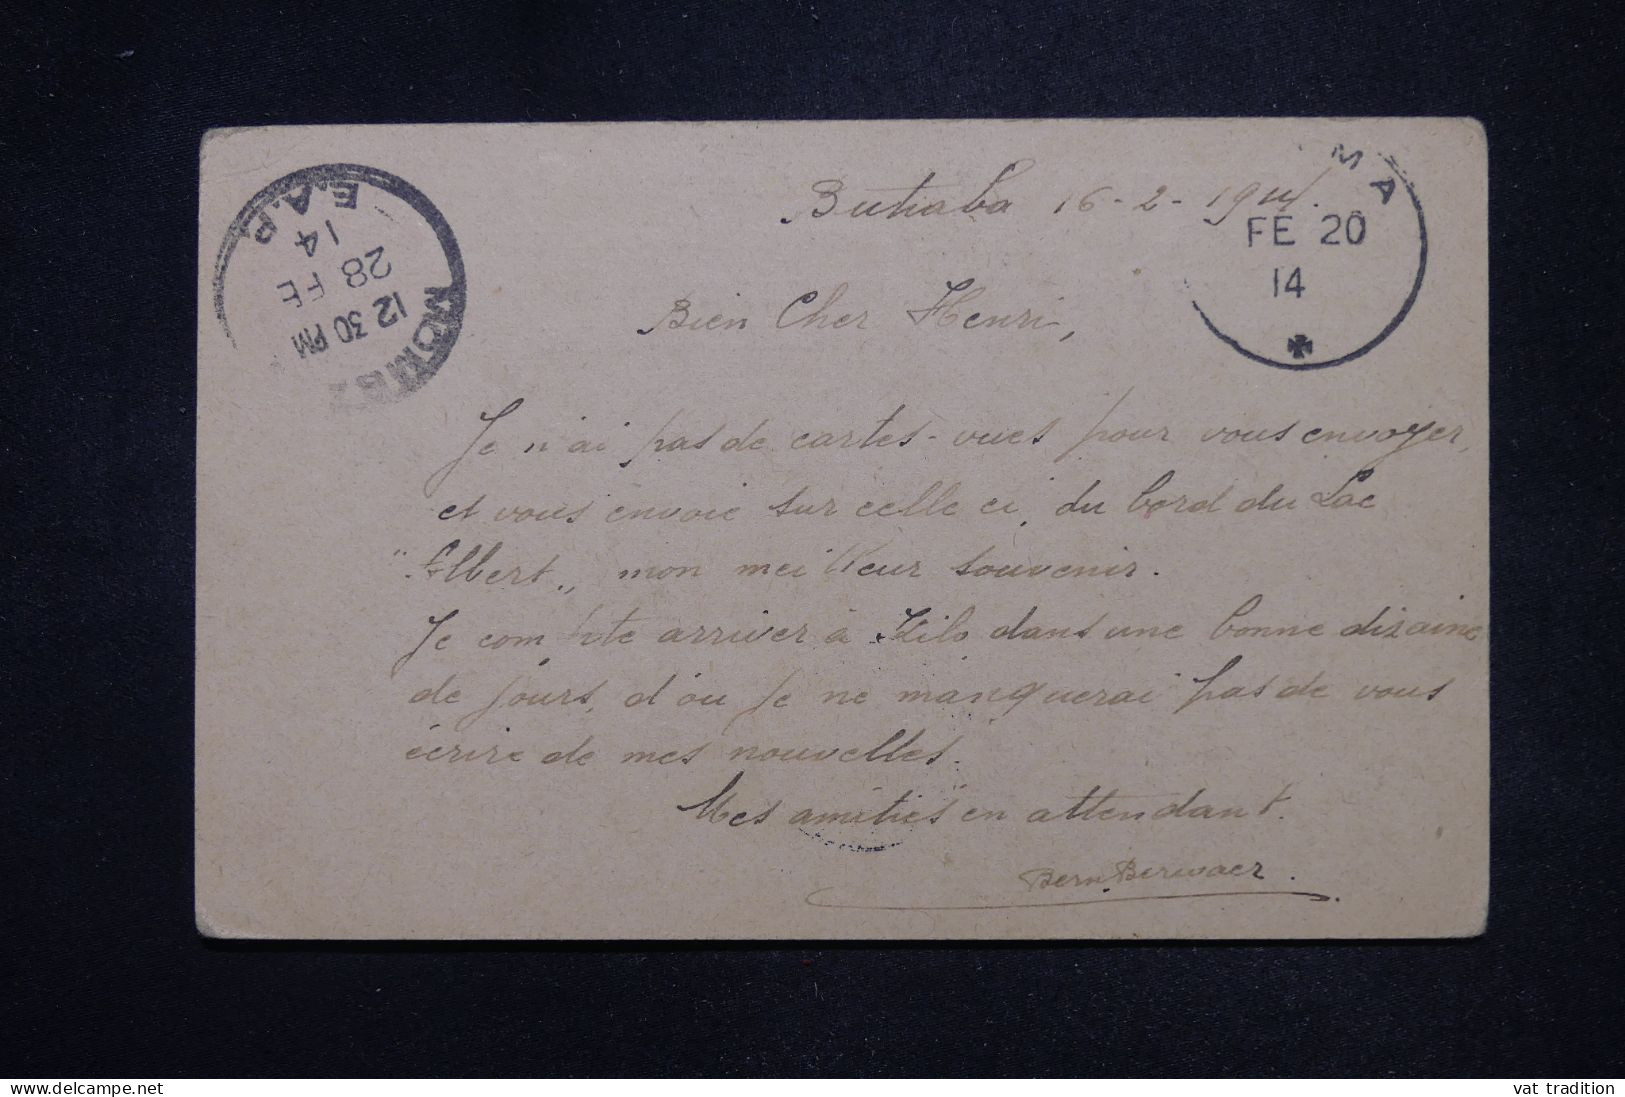 Butiaba 16-2-1914.
M A
FE 20
14
E.A.P.
14
28 FE
12 30 PM
Bien Cher Henri,
Je n'ai pas de cartes-vues pour vous envoyer,
et vous envoie sur celle ci, du bord du Lac
"Albert„ mon meilleur souvenir.
Je compte arriver à Kilo dans une bonne dizaine
de jours, d'ou je ne manquerai pas de vous
écrire de mes nouvelles.
Mes amitiés en attendant.
Bern. Berwaer.
www.delcampe.net
vat tradition